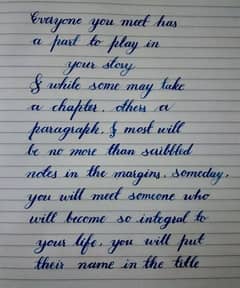 Everyone you meet has
a part to play in
your story
& while some may take
a chapter, others a
paragraph, & most will
be no more than scribbled
notes in the margins, someday,
you will meet someone who
will become so integral to
your life, you will put
their name in the title